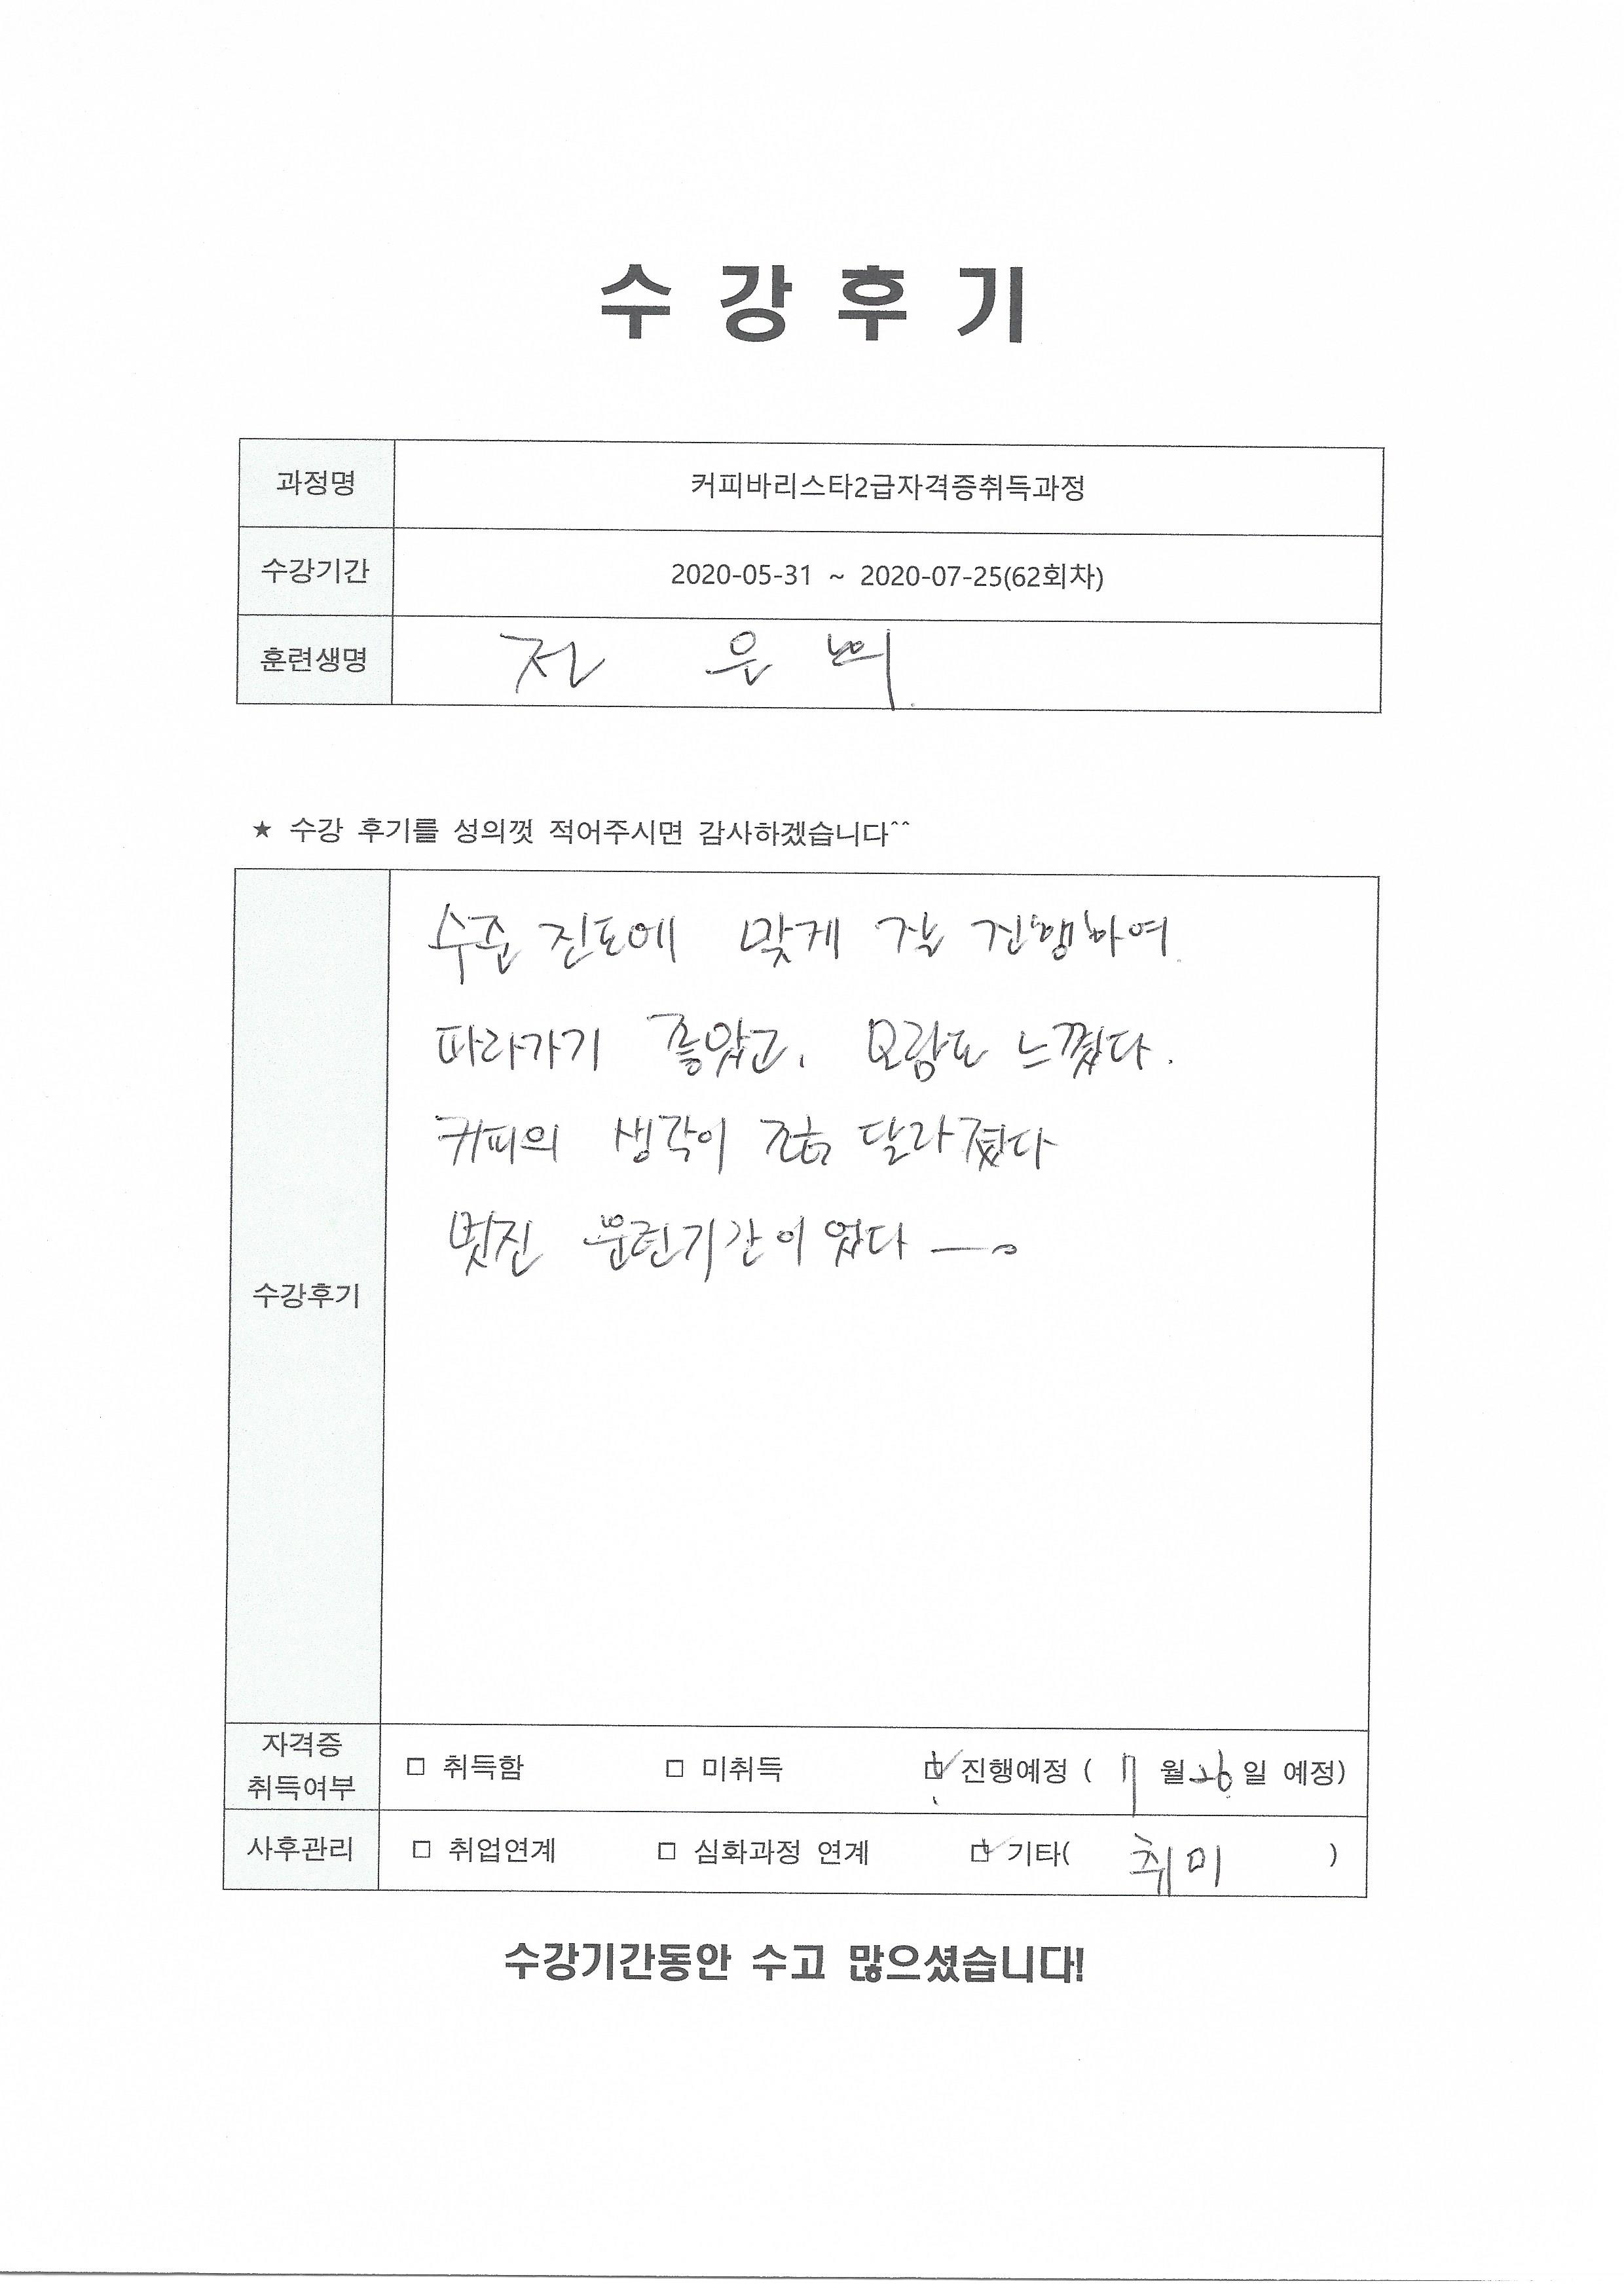 수 강 후 기
과정명 커피바리스타2급자격증취득과정
수강기간 2020-05-31 ~ 2020-07-25(62회차)
훈련생명 전 은
★ 수강 후기를 성의껏 적어주시면 감사하겠습니다^^
수강후기
수준 진도에 맞게 잘 진행하여
따라가기 좋았고, 보람도 느꼈다.
커피의 생각이 조금 달라졌다
멋진 훈련기간이었다
자격증 취득여부 □ 취득함 □ 미취득 ☑ 진행예정 ( 7 월 26 일 예정)
사후관리 □ 취업연계 □ 심화과정 연계 ☑ 기타( 취미 )
수강기간동안 수고 많으셨습니다!